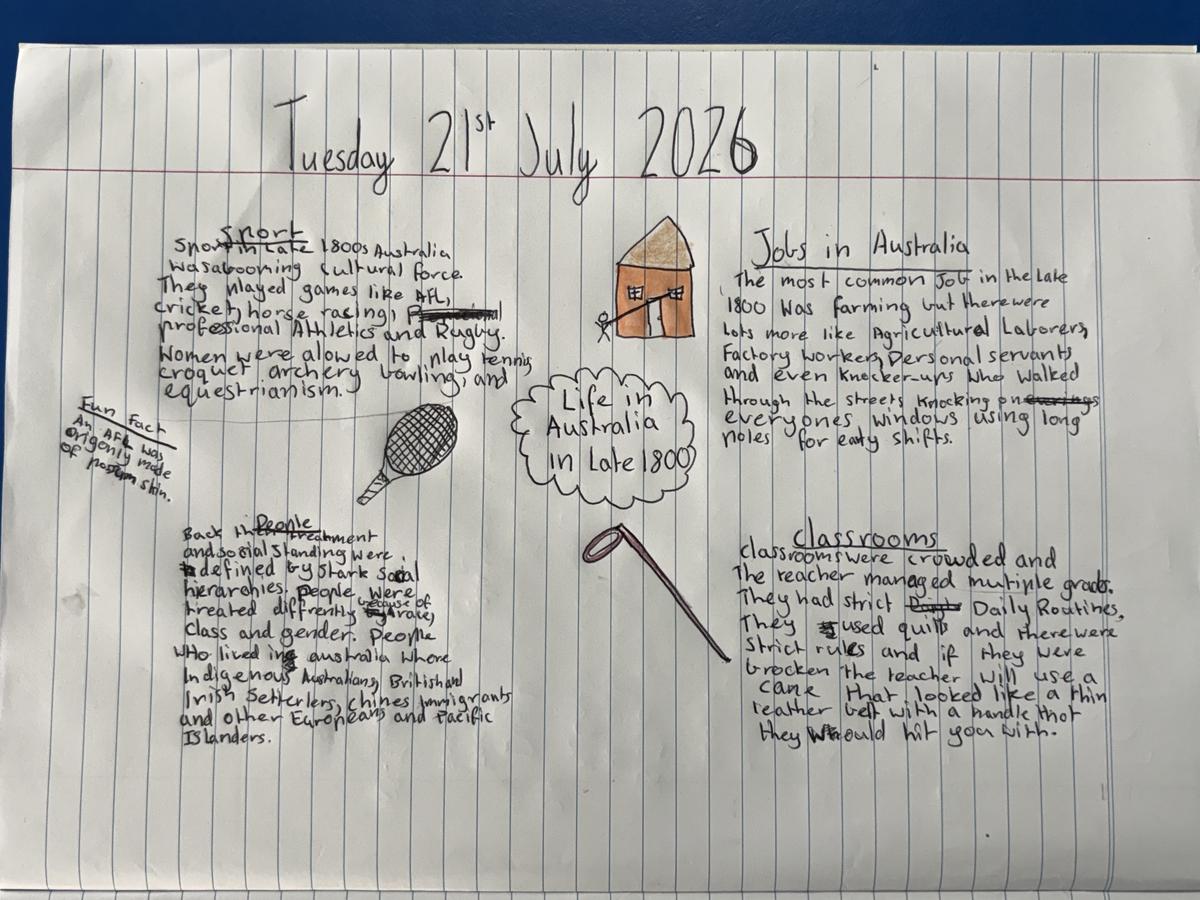 Tuesday 21st July 2026
Sport
Sport in Late 1800s Australia
was a booming cultural force.
They played games like AFL,
cricket, horse racing,
professional Athletics and Rugby.
Women were alowed to play tennis
croquet archery bowling, and
equestrianism.
Fun Fact
An AFL was
origonly made
of possum skin.
People
Back then treatment
and social standing were
defined by stark Social
hierarchies. people were
treated diffrently because of race,
Class and gender. People
who lived in australia where
Indigenous Australians, British and
Irish Setterlers, chines immigrants
and other Europeans and Pacific
Islanders.
Life in
Australia
in Late 1800
Jobs in Australia
The most common Job in the Late
1800 was farming but there were
Lots more like Agricultural Laborers,
Factory workers, Personal servants
and even Knocker-ups who walked
through the streets knocking on
everyones windows using long
poles for early shifts.
classrooms
classrooms were crowded and
The teacher managed multiple grads.
They had strict Daily Routines,
They used quills and there were
strict rules and if they were
brocken the teacher will use a
cane that looked like a thin
leather belt with a handle that
they would hit you with.